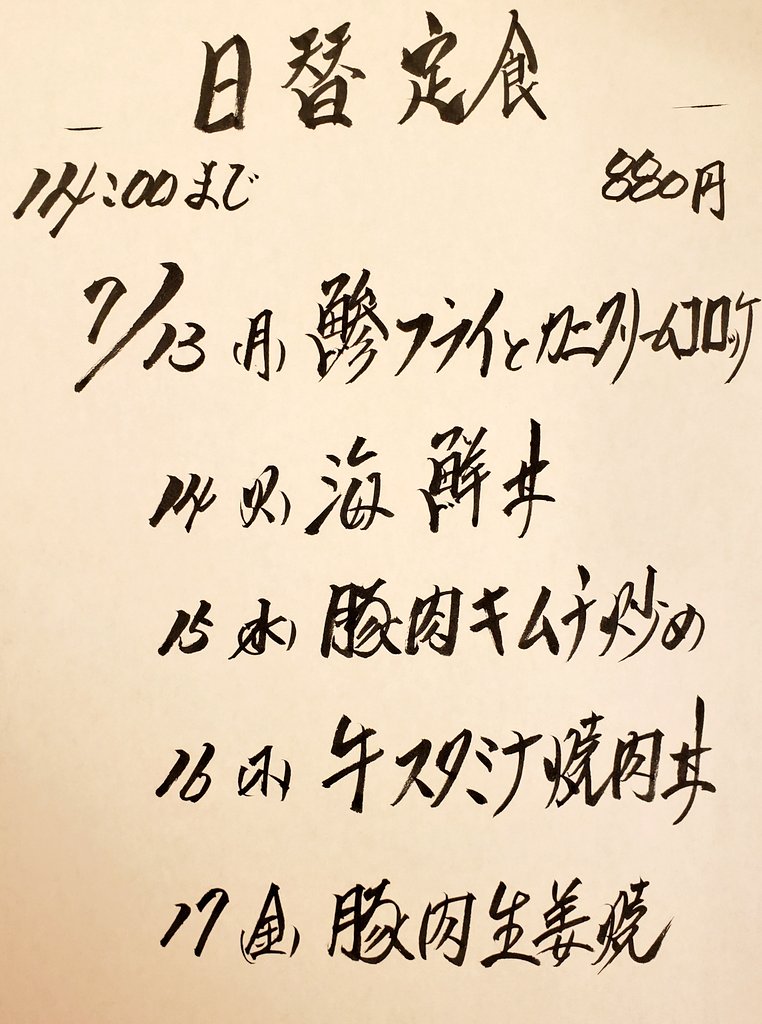 日替定食
14:00まで 880円
7/13(月) 鯵フライとカニクリームコロッケ
14(火) 海鮮丼
15(水) 豚肉キムチ炒め
16(木) 牛スタミナ焼肉丼
17(金) 豚肉生姜焼